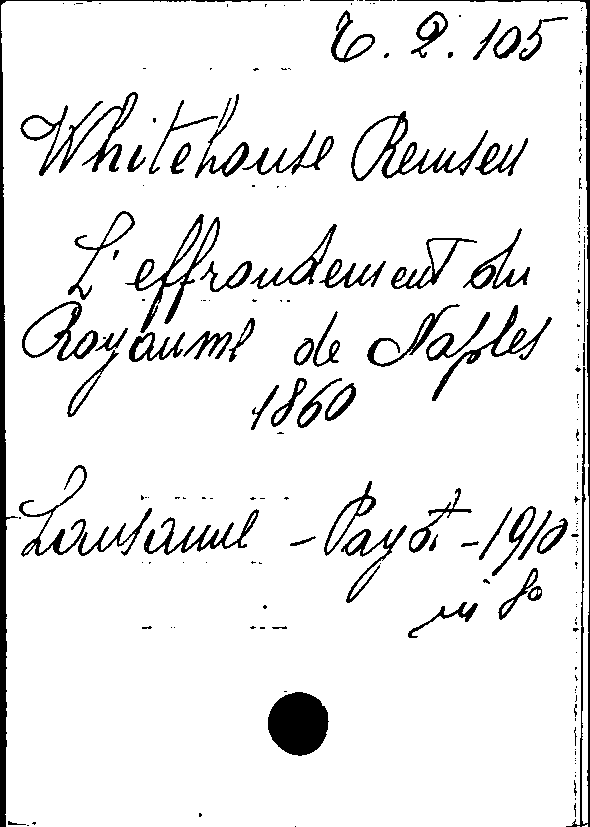 6. 2. 105
Whitehouse Remsen
L'effrondement du
Royaume de Naples
1860
Lausanne - Payot - 1910
in 8º